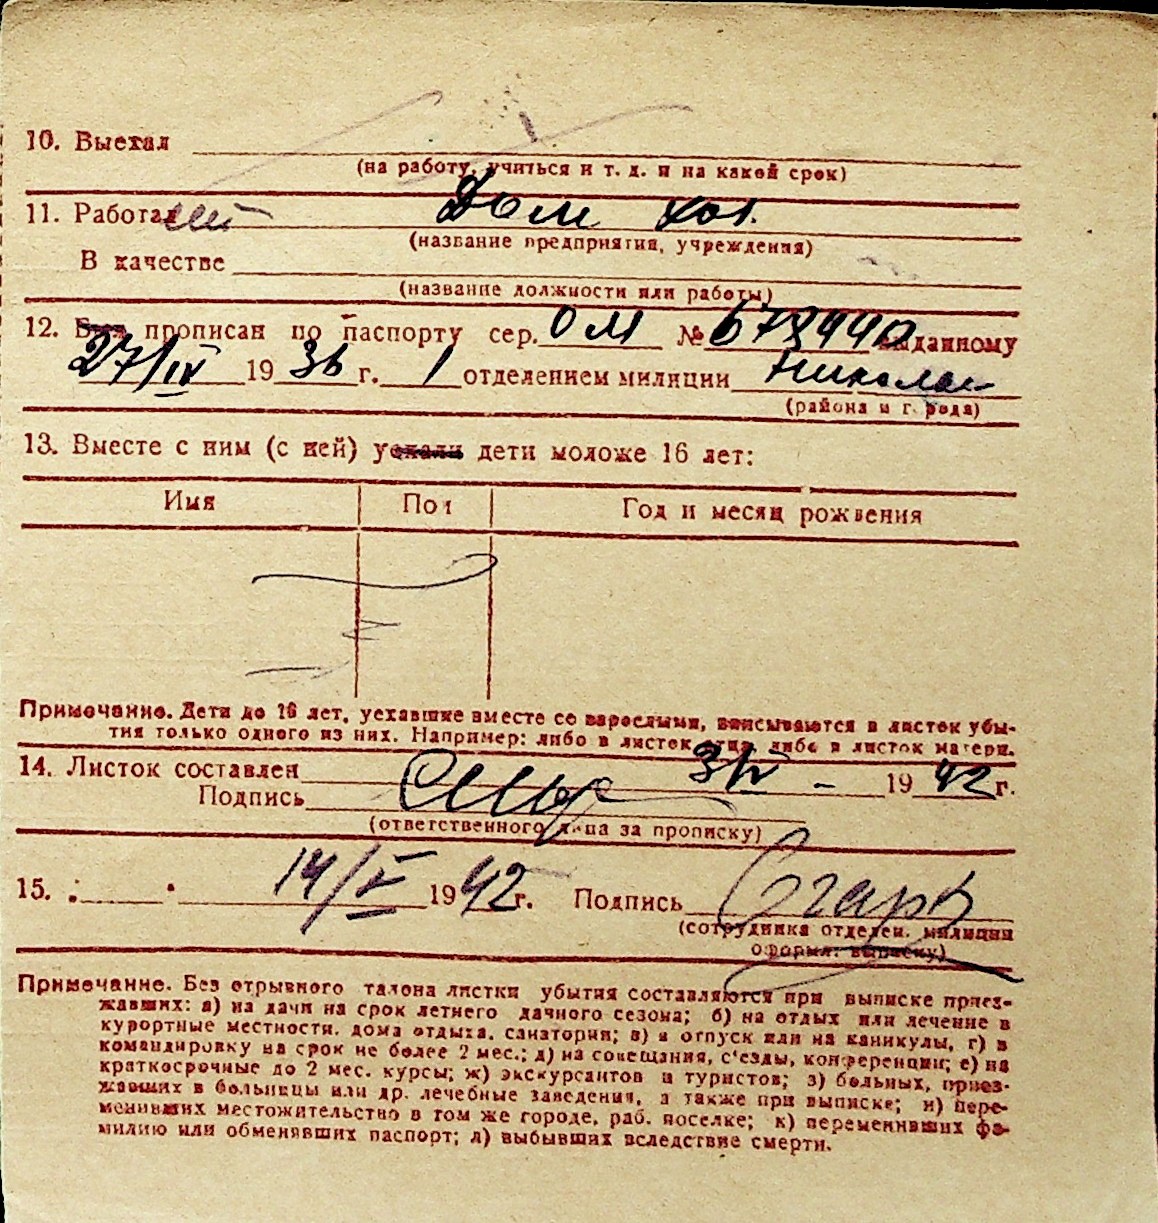 10. Выехал
(на работу, учиться и т. д. и на какой срок)
11. Работал Дом хоз.
(название предприятия, учреждения)
В качестве
(название должности или работы)
12. Был прописан по паспорту сер. ОМ № 679440 выданному
27/IV 1936 г. 1 отделением милиции Николаев
(района и города)
13. Вместе с ним (с ней) уехали дети моложе 16 лет:
Имя Пол Год и месяц рождения
Примечание. Дети до 16 лет, уехавшие вместе со взрослыми, вписываются в листок убы-
тия только одного из них. Например: либо в листок отца, либо в листок матери.
14. Листок составлен 3/IV - 1942 г.
Подпись
(ответственного лица за прописку)
15. 14/V 1942 г. Подпись
(сотрудника отделен. милиции
оформл. выписку)
Примечание. Без отрывного талона листки убытия составляются при выписке приез-
жавших: а) на дачи на срок летнего дачного сезона; б) на отдых или лечение в
курортные местности, дома отдыха, санатории; в) в отпуск или на каникулы, г) в
командировку на срок не более 2 мес.; д) на совещания, с'езды, конференции; е) на
краткосрочные до 2 мес. курсы; ж) экскурсантов и туристов; з) больных, приез-
жавших в больницы или др. лечебные заведения, а также при выписке; и) пере-
менивших местожительство в том же городе, раб. поселке; к) переменивших фа-
милию или обменявших паспорт; л) выбывших вследствие смерти.